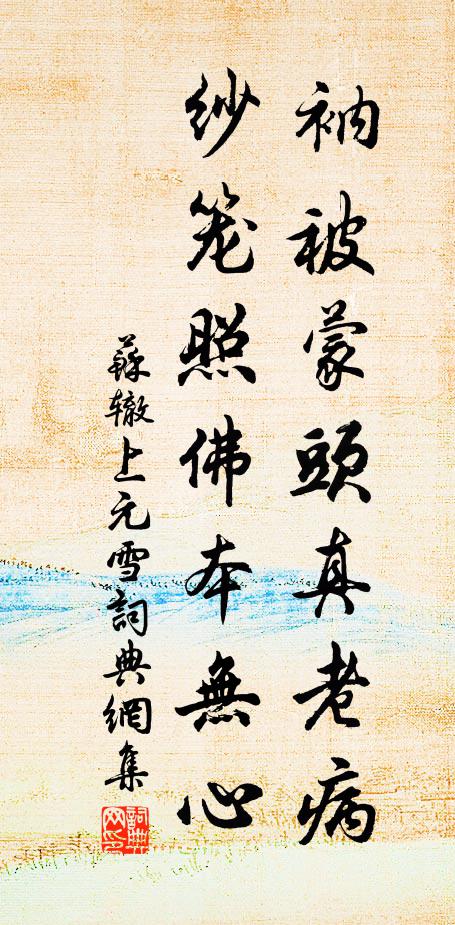 衲被蒙頭真老病
紗笼照佛本無心
蘇辙上元雪詞典網集
詞典网印